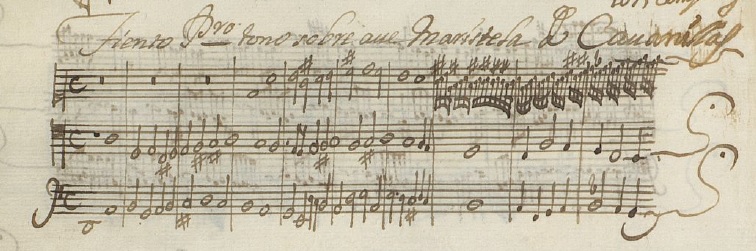 Tiento Pro. tono sobre aue Maristela D Cauanillas